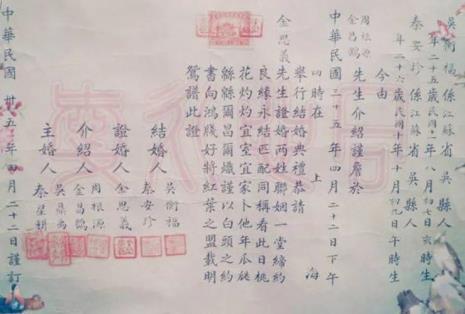 吳衡福係江蘇省吳縣人
年二十五歲民國十一年八月初七亥時生
秦安珍係江蘇省吳縣人
年二十六歲民國十年十月初九日午時生
今由
周根源
金昌鶴
先生介紹謹詹於
中華民國三十五年四月二十二日下午
四時在上海
舉行結婚典禮恭請
金思義先生證婚兩姓聯姻一堂締約
良緣永結匹配同稱看此日桃
花灼灼宜室宜家卜他年瓜瓞
緜緜爾昌爾熾謹以白頭之約
書向鴻牋好將紅葉之盟載明
鴛譜此證
結婚人
吳衡福
秦安珍
證婚人
金思義
介紹人
周根源
金昌鶴
主婚人
中華民國卅五年四月二十二日謹訂